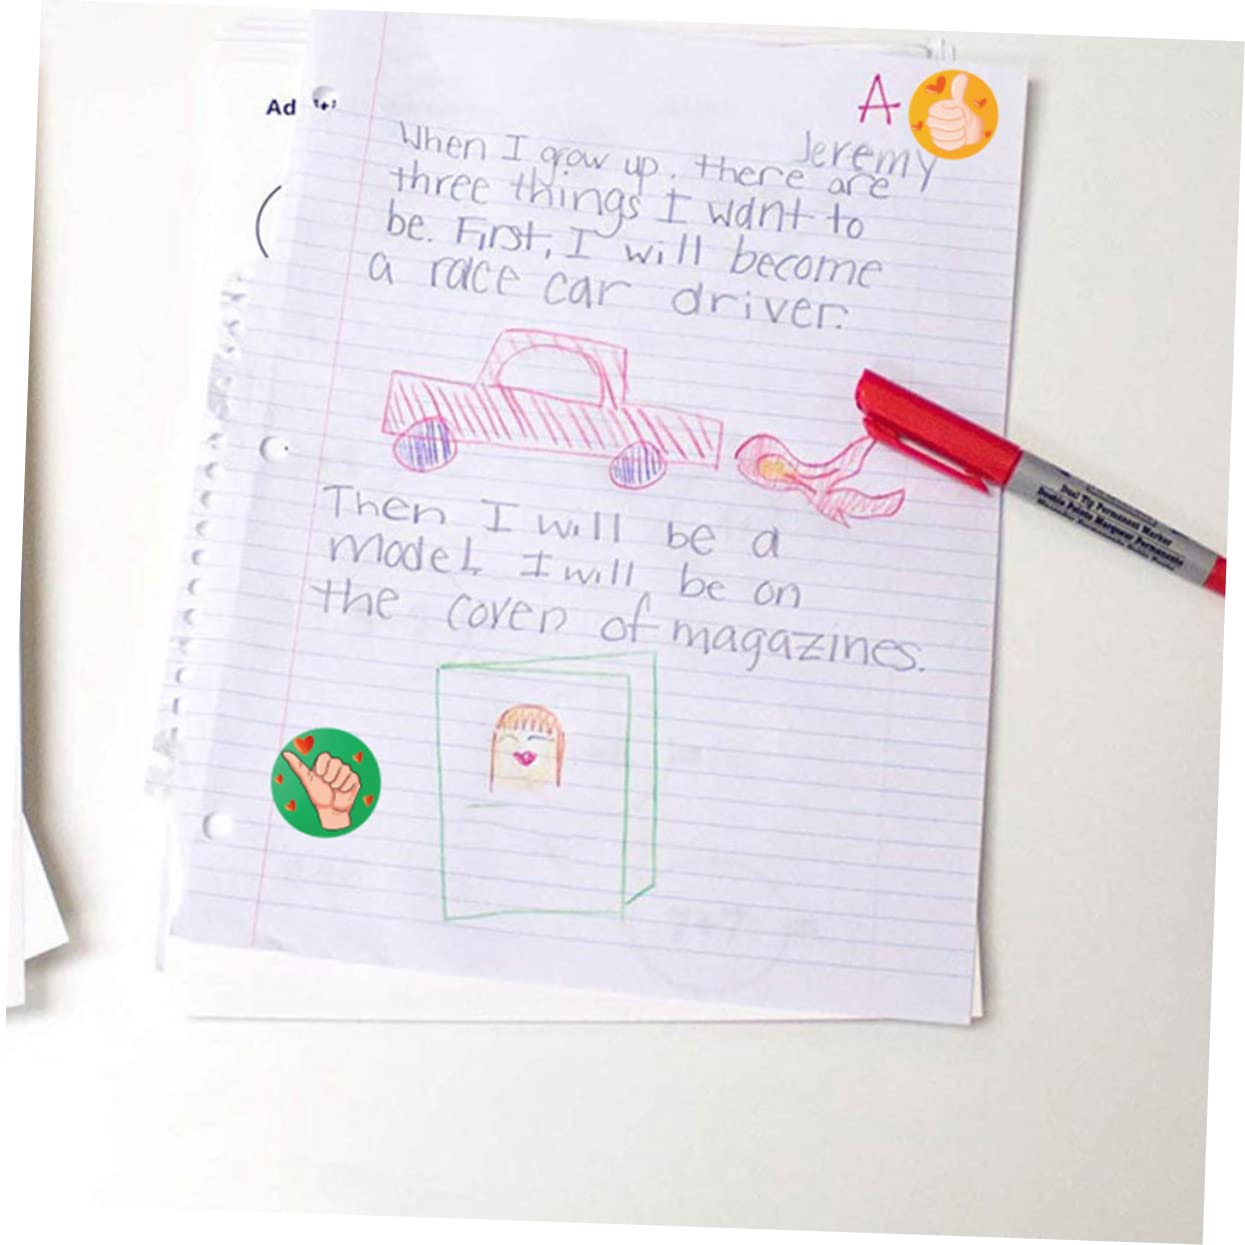 Ad
A
Jeremy
When I grow up, there are
three things I want to
be. First, I will become
a race car driver.
Then I will be a
model. I will be on
the cover of magazines.
Dual Tip Permanent Marker